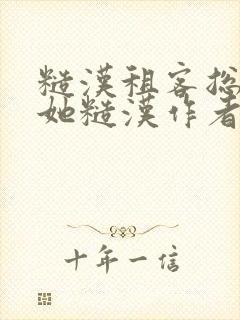 糙漢租客捴
她糙漢作者
十年一信